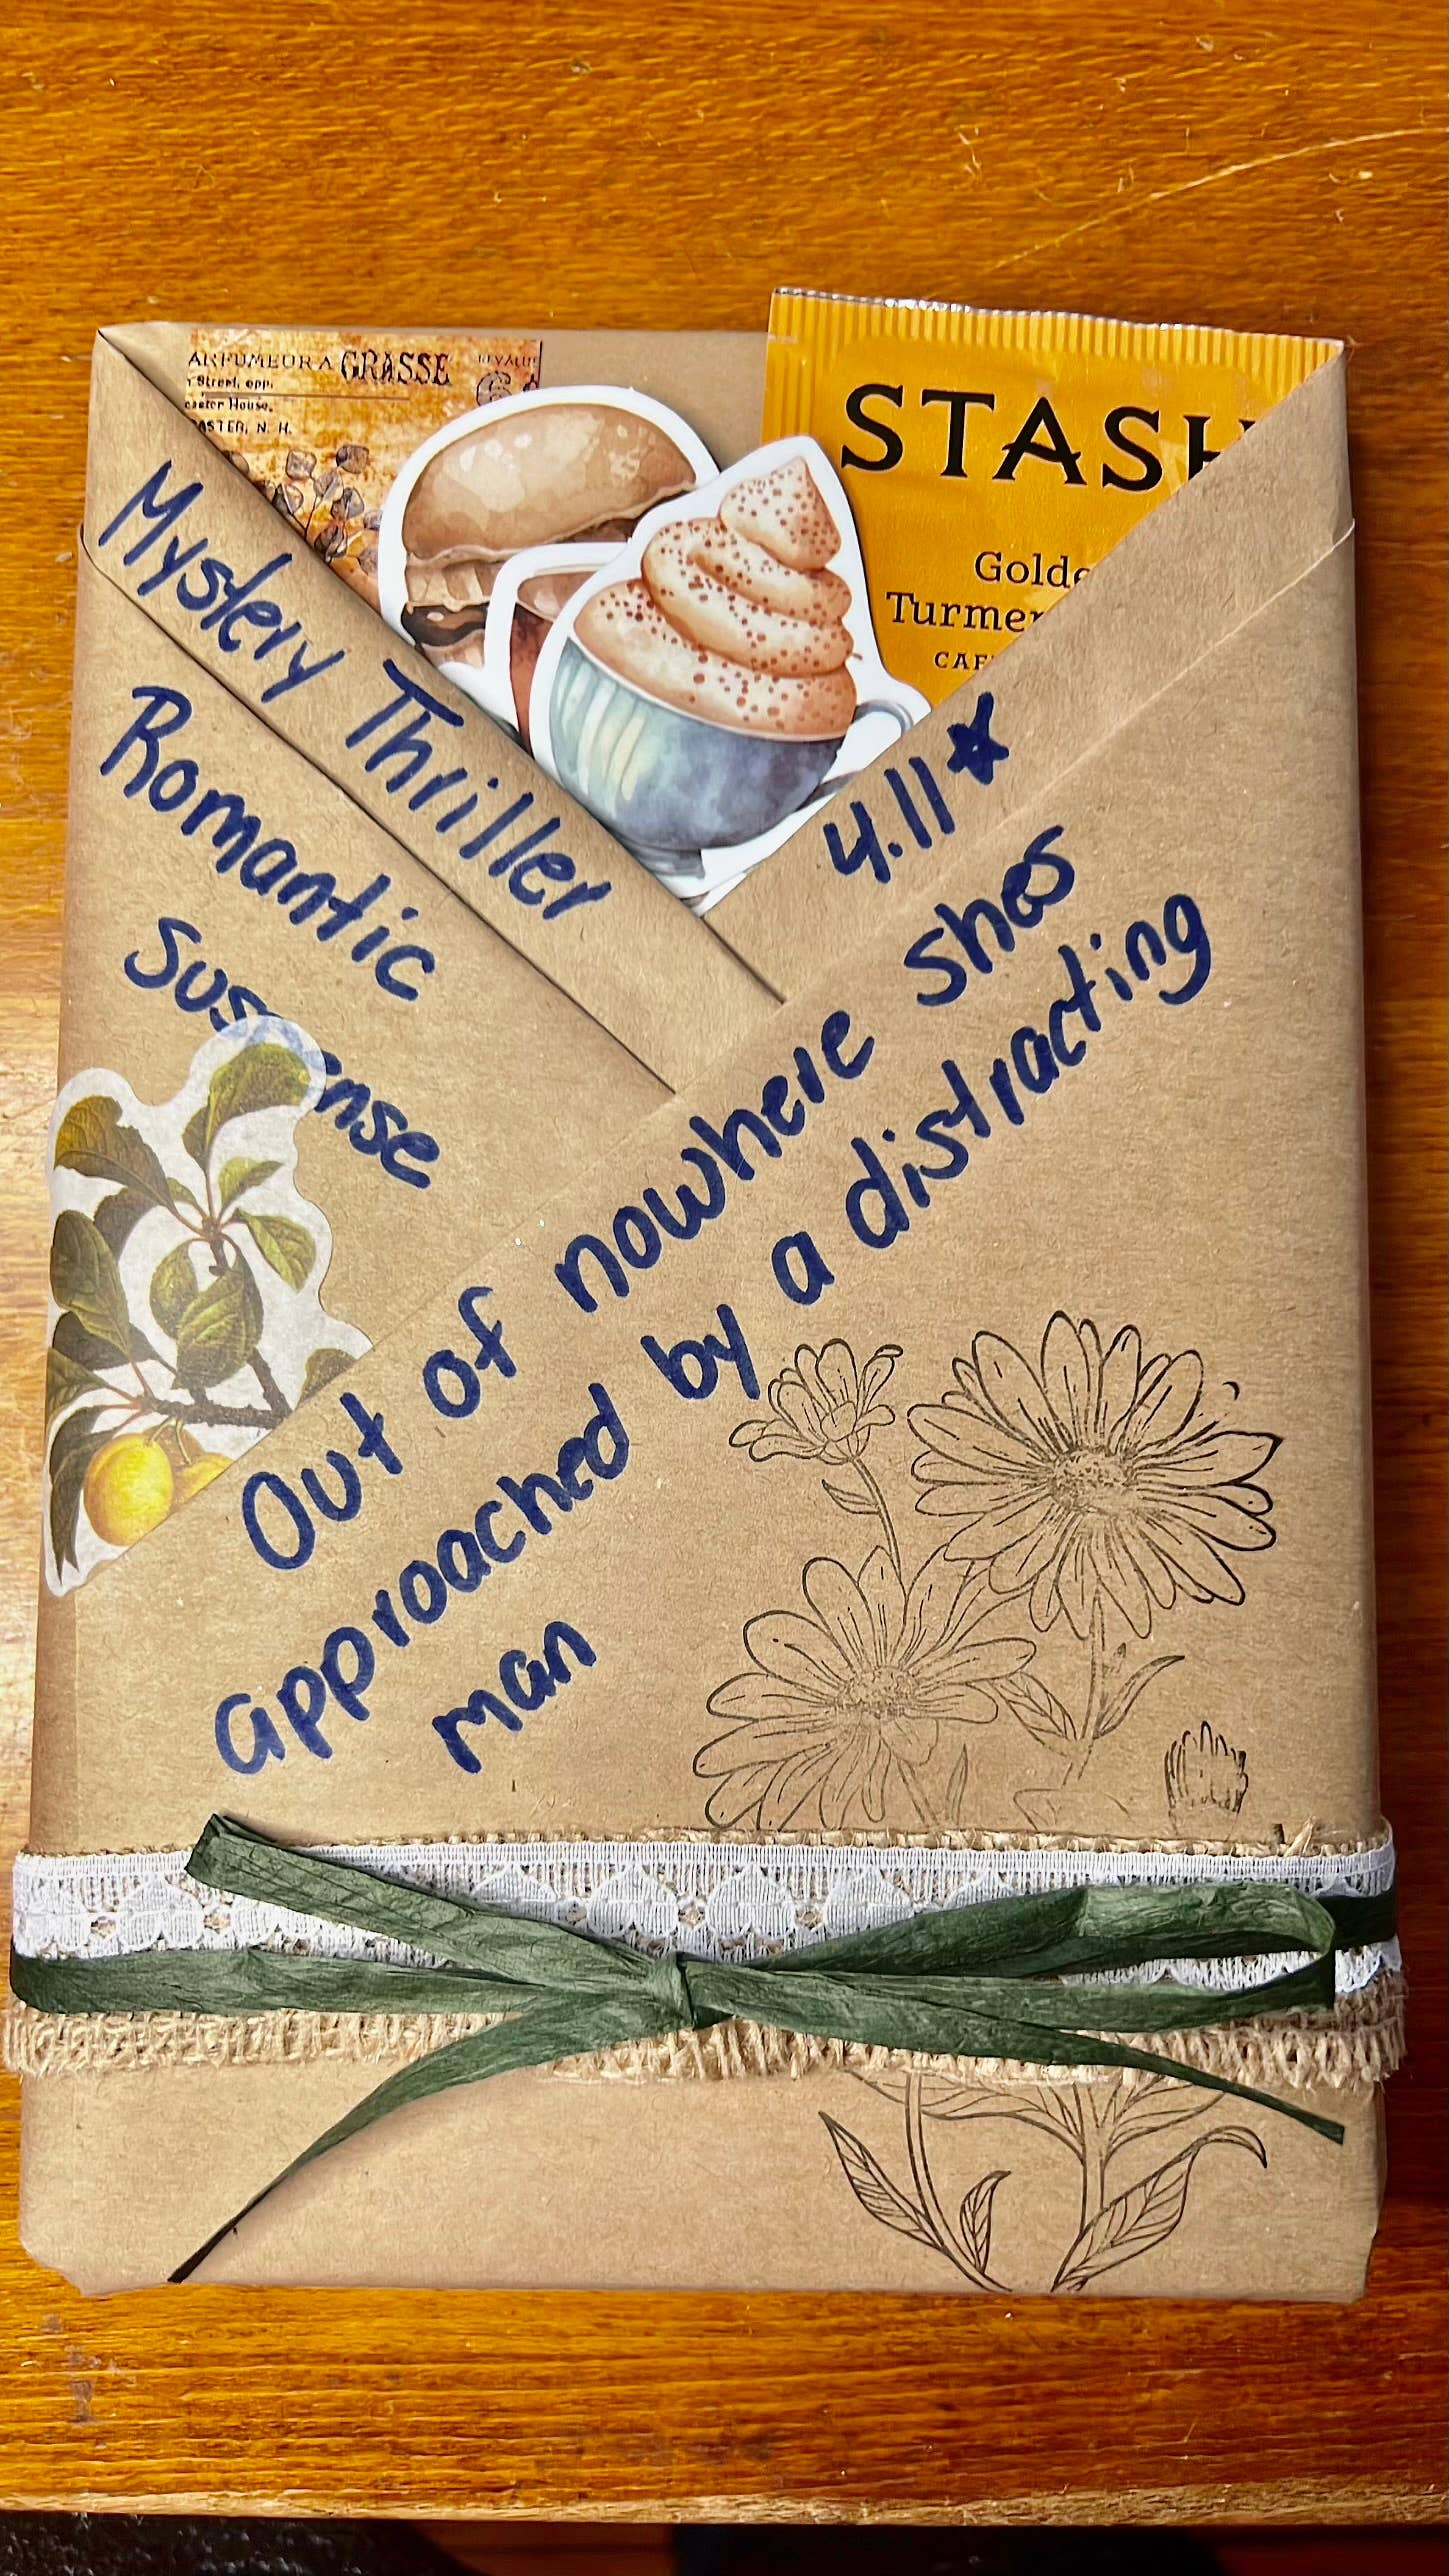 ARFUMEUR A GRASSE
Street, opp.
caster House,
ASTER, N. H.
STASH
Golde
Turmer
CAF
Mystery Thriller
Romantic
Sus ense
4.11★
Out of nowhere shes
approached by a distracting
man